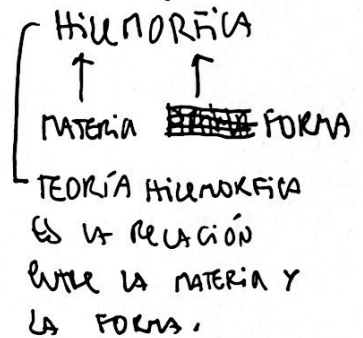 HILEMÓRFICA
MATERIA FORMA
TEORÍA HILEMORFICA
ES LA RELACIÓN
ENTRE LA MATERIA Y
LA FORMA.